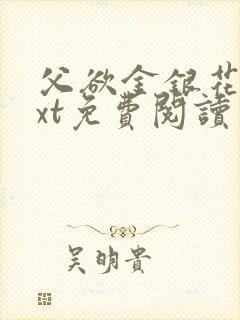 父欲金银花
xt免費閱讀
吴明貴